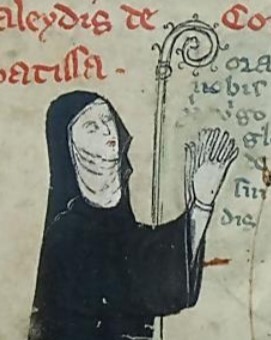 aleydis de Co
batissa
ora
nobis
v̓go
gl
sui
dis